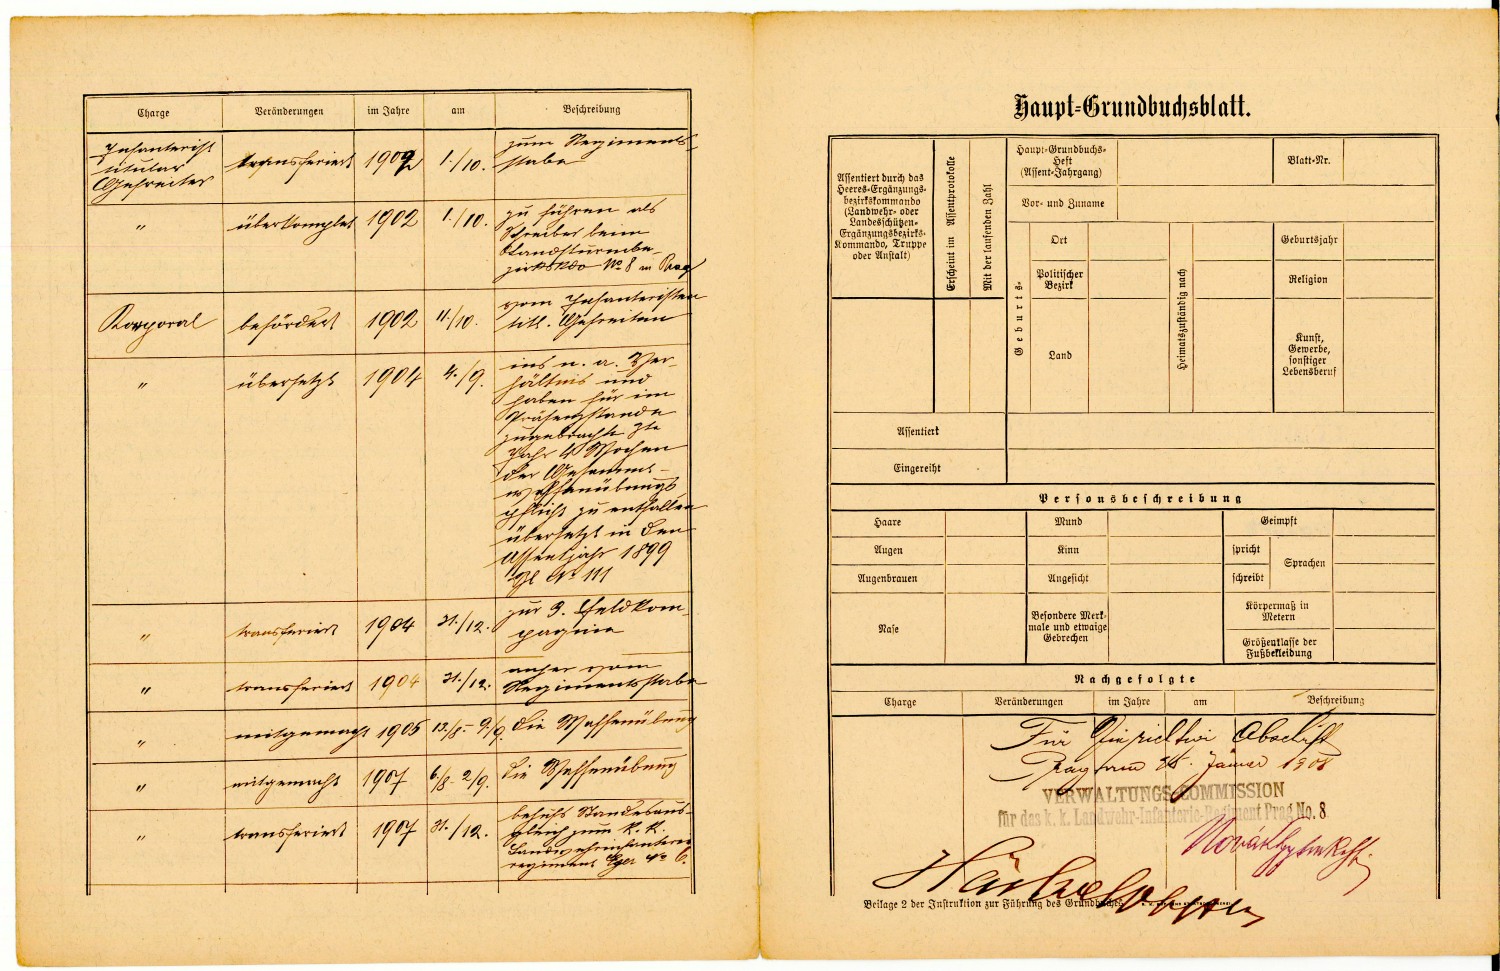 Charge Veränderungen im Jahre am Beschreibung
Infanterist
titular
Gefreiter
transferiert 1902 1./10. zum Regiments-
stabe
" überkomplet 1902 1./10. zu führen als
Schreiber beim
Landsturmbe-
zirkskdo No 8 in Prag
Korporal befördert 1902 11./10. vom Infanteristen
titl. Gefreiten
" übersetzt 1904 4./9. ins n. a. Ver-
hältnis und
haben für im
Präsenzstande
zugebrachte 3te
Jahr 4 Wochen
der Gesammt-
waffenübungs
pflicht zu entfallen
übersetzt in den
Assentjahr 1899
Gbl No 111
" transferiert 1904 31./12. zur 3. Feldkom-
pagnie
" transferiert 1904 31./12. anher vom
Regimentsstabe
" mitgemacht 1905 13./8.- 9./9. die Waffenübung
" mitgemacht 1907 6./8- 2/9. die Waffenübung
" transferiert 1907 31./12. behufs Standesaus-
gleich zum k. k.
Landwehrinfanterie
regiment Eger No 6.
Haupt-Grundbuchsblatt.
Assentiert durch das
Heeres-Ergänzungs-
bezirkskommando
(Landwehr- oder
Landesschützen-
Ergänzungsbezirks-
Kommando, Truppe
oder Anstalt)
Erscheint im Assentprotokolle
Mit der laufenden Zahl
Haupt-Grundbuchs-
Heft
(Assent-Jahrgang)
Blatt-Nr.
Vor- und Zuname
Geburts-
Ort
Politischer
Bezirk
Land
Heimatszuständig nach
Geburtsjahr
Religion
Kunst,
Gewerbe,
sonstiger
Lebensberuf
Assentiert
Eingereiht
Personsbeschreibung
Haare Mund Geimpft
Augen Kinn spricht Sprachen
Augenbrauen Angesicht schreibt
Nase Besondere Merk-
male und etwaige
Gebrechen
Körpermaß in
Metern
Größenklasse der
Fußbekleidung
Nachgefolgte
Charge Veränderungen im Jahre am Beschreibung
Für Abschrift
Prag am Jänner 1908
VERWALTUNGS-COMMISSION
für das k. k. Landwehr-Infanterie-Regiment Prag No. 8
Novák
Beilage 2 der Instruktion zur Führung des Grundbuches